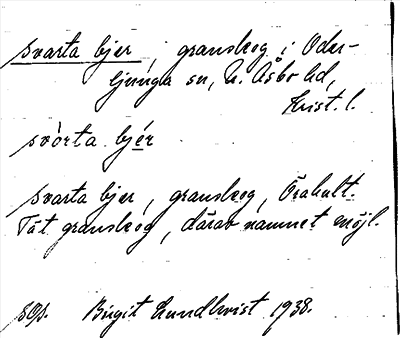 svarta bjer, granskog i Oder-
ljunga sn, N. Åsbo hd,
Krist. l.
svòrta bjér
svarta bjer, granskog, Örahult.
Tät granskog, därav namnet möjl.
Birgit Lundkvist 1938.